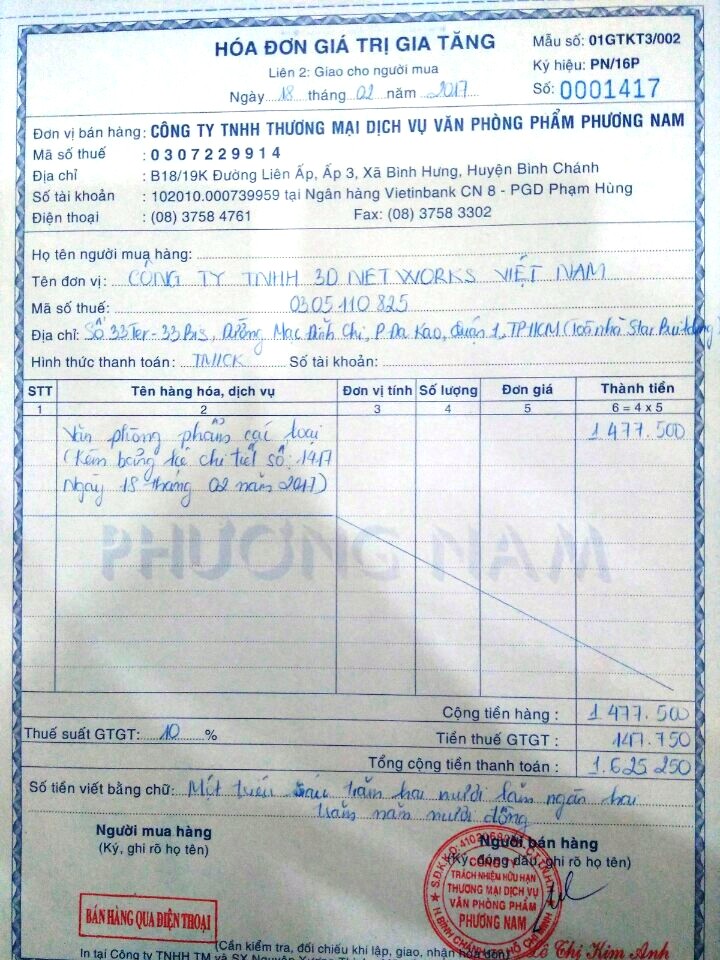 HÓA ĐƠN GIÁ TRỊ GIA TĂNG
Mẫu số: 01GTKT3/002
Liên 2: Giao cho người mua
Ký hiệu: PN/16P
Ngày 18 tháng 02 năm 2017
Số: 0001417
Đơn vị bán hàng: CÔNG TY TNHH THƯƠNG MẠI DỊCH VỤ VĂN PHÒNG PHẨM PHƯƠNG NAM
Mã số thuế : 0307229914
Địa chỉ : B18/19K Đường Liên Ấp, Ấp 3, Xã Bình Hưng, Huyện Bình Chánh
Số tài khoản : 102010.000739959 tại Ngân hàng Vietinbank CN 8 - PGD Phạm Hùng
Điện thoại : (08) 3758 4761 Fax: (08) 3758 3302
Họ tên người mua hàng:
Tên đơn vị: CÔNG TY TNHH 3D NETWORKS VIỆT NAM
Mã số thuế: 0305110825
Địa chỉ: Số 33Ter-33Bis, Đường Mạc Đĩnh Chi, P Đa Kao, Quận 1, TPHCM (Toà nhà Star Building)
Hình thức thanh toán: TM/CK Số tài khoản:
STT Tên hàng hóa, dịch vụ Đơn vị tính Số lượng Đơn giá Thành tiền
1 2 3 4 5 6 = 4 x 5
Văn phòng phẩm các loại 1 477.500
(Kèm bảng kê chi tiết số: 1417
Ngày 18 tháng 02 năm 2017)
PHƯƠNG NAM
Cộng tiền hàng : 1 477.500
Thuế suất GTGT: 10 % Tiền thuế GTGT : 147.750
Tổng cộng tiền thanh toán : 1.625 250
Số tiền viết bằng chữ: Một triệu sáu trăm hai mươi lăm ngàn hai
trăm năm mươi đồng
Người mua hàng
(Ký, ghi rõ họ tên)
Người bán hàng
(Ký, đóng dấu, ghi rõ họ tên)
BÁN HÀNG QUA ĐIỆN THOẠI
CÔNG TY
TRÁCH NHIỆM HỮU HẠN
THƯƠNG MẠI DỊCH VỤ
VĂN PHÒNG PHẨM
PHƯƠNG NAM
Lê Thị Kim Anh
(Cần kiểm tra, đối chiếu khi lập, giao, nhận hóa đơn)
In tại Công ty TNHH TM và SX Nguyên Xương